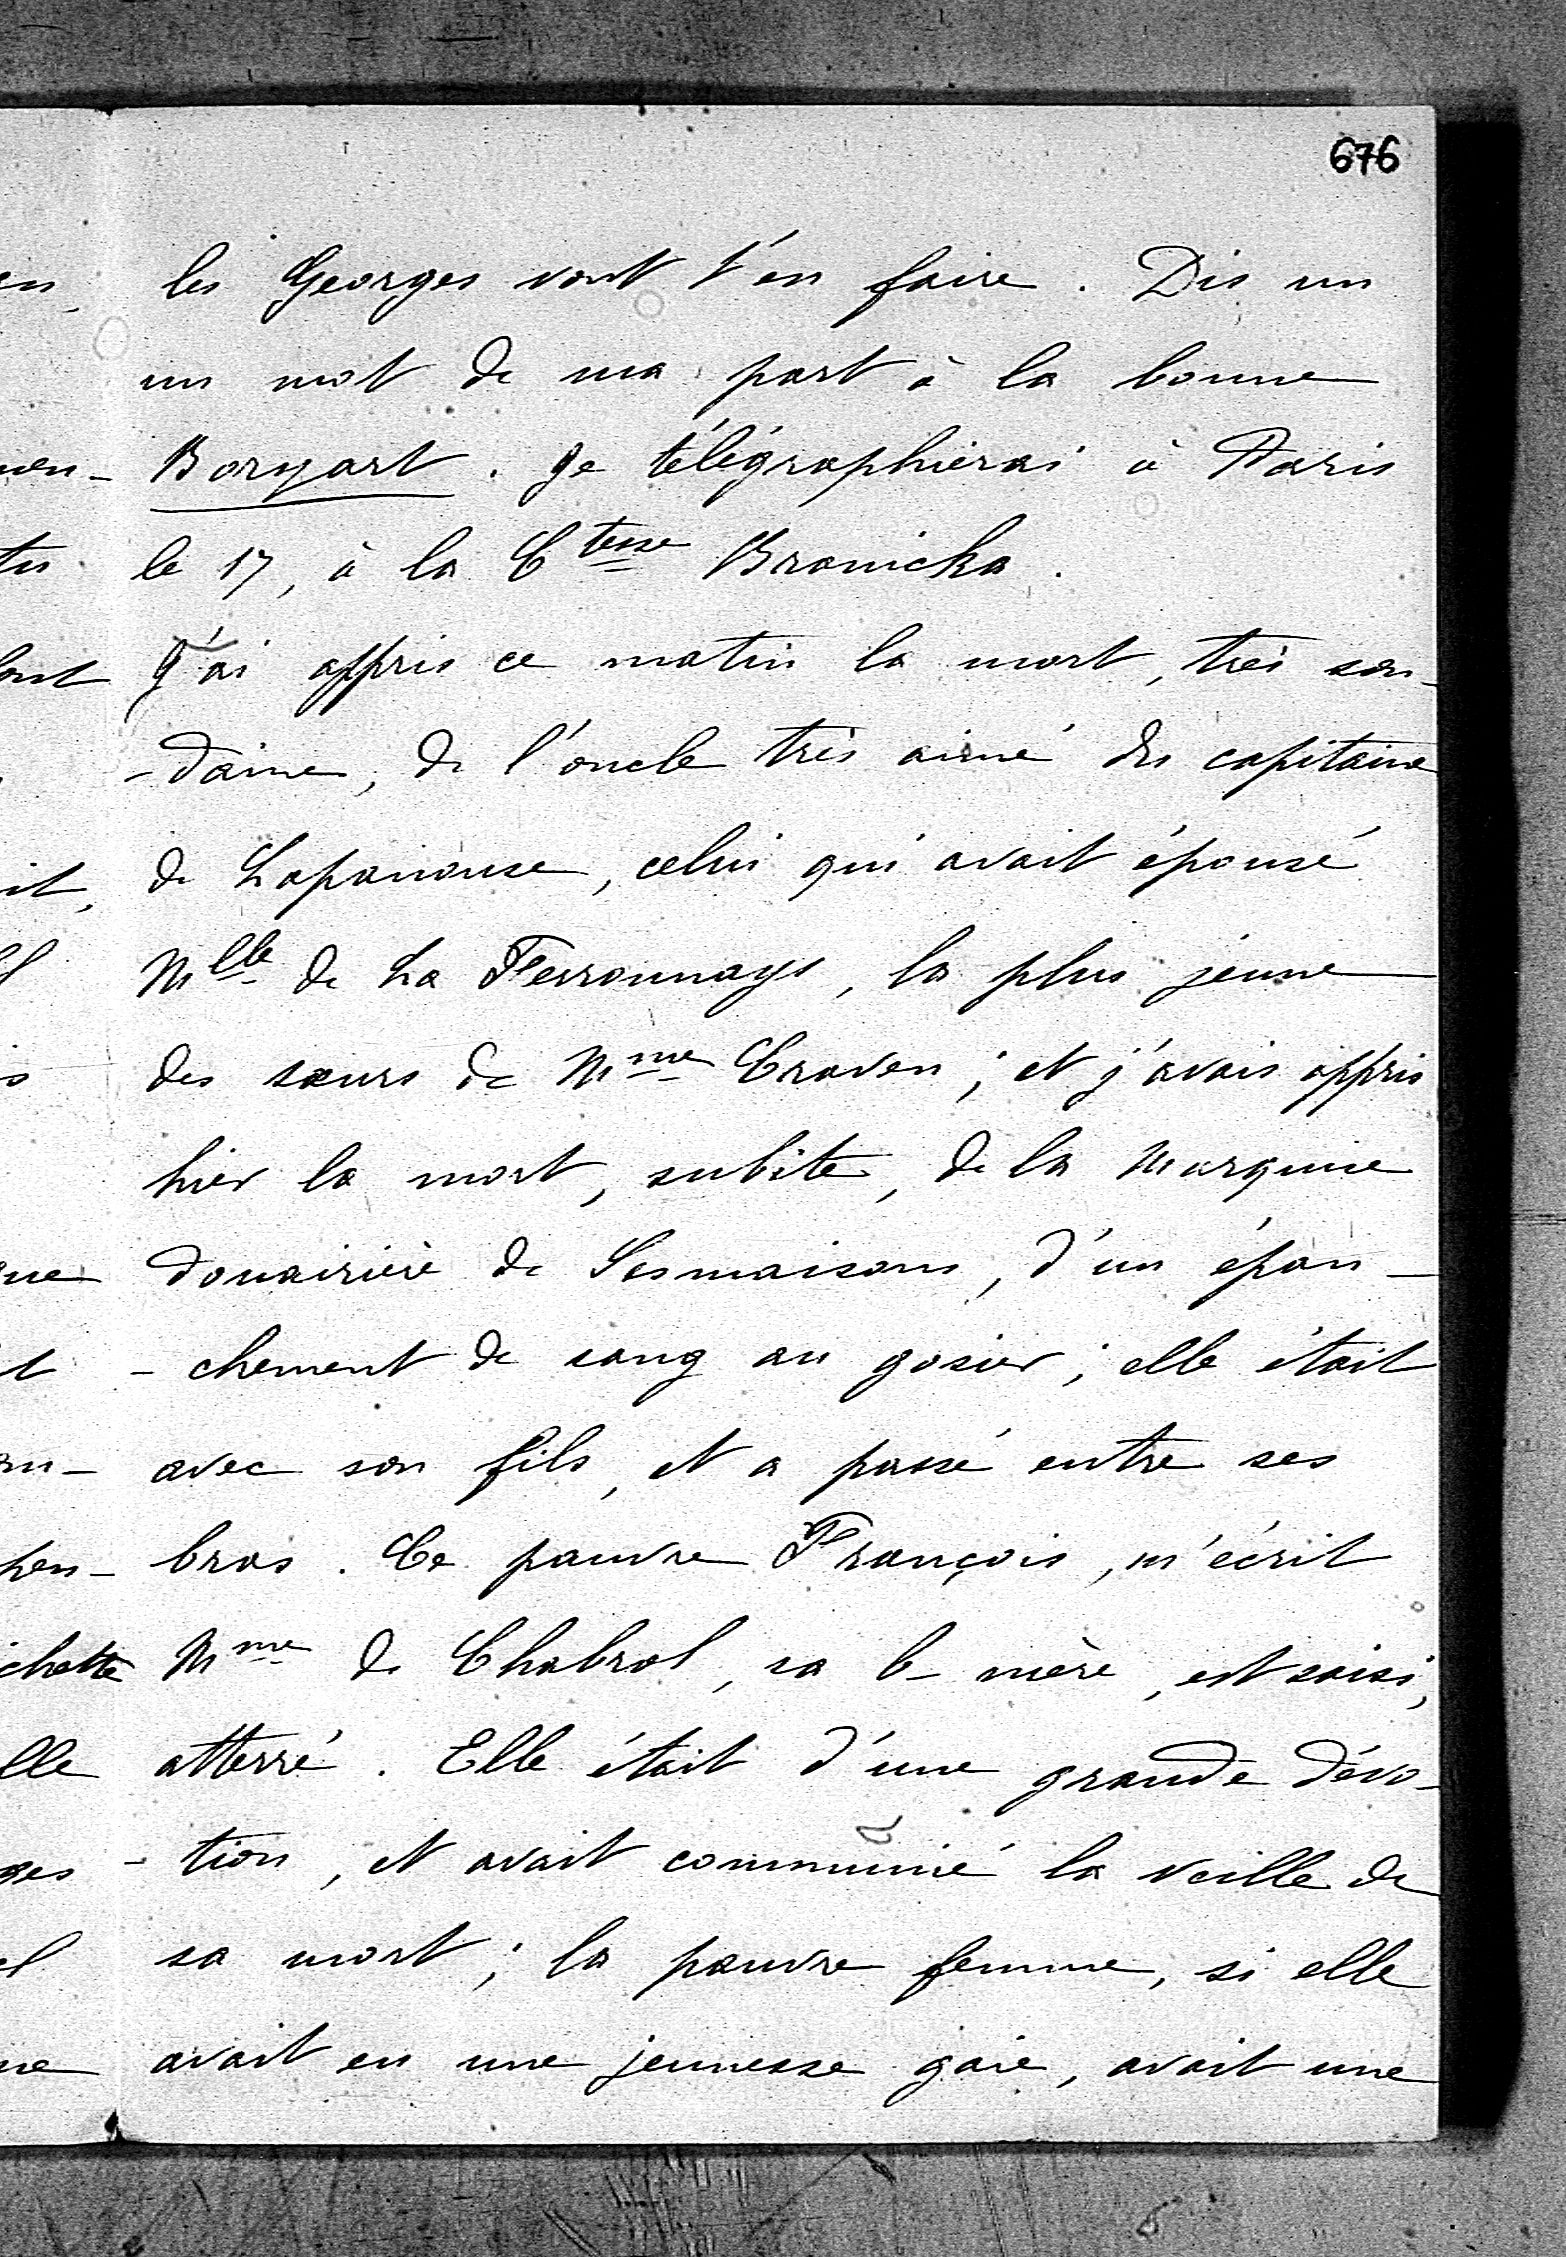 676
les Georges vont t'en faire. Dis un
un mot de ma part à la bonne
Boryart. Je télégraphierai à Paris
le 17, à la Ctesse Branicka.
J'ai appris ce matin la mort, très sou-
-daine, de l'oncle très aimé du capitaine
de Lapanouse, celui qui avait épousé
Mlle de La Ferronnays, la plus jeune
des sœurs de Mme Craven ; et j'avais appris
hier la mort, subite, de la Marquise
douairière de Sesmaisons, d'un épan-
-chement de sang au gosier ; elle était
avec son fils, et a passé entre ses
bras. Ce pauvre François, m'écrit
Mme de Chabrol, sa b-mère, est saisi,
atterré. Elle était d'une grande dévo-
-tion, et avait communié la veille de
sa mort ; la pauvre femme, si elle
avait eu une jeunesse gaie, avait une